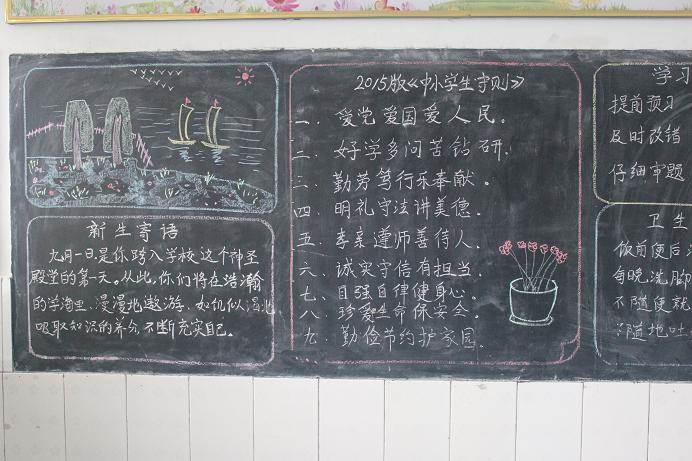 新生寄语
九月一日,是你跨入学校这个神圣
殿堂的第一天。从此,你们将在浩瀚
的学海里,漫漫地遨游,如饥似渴地
吸取知识的养分,不断充实自己。
2015版《中小学生守则》
一、爱党爱国爱人民。
二、好学多问苦钻研.
三、勤劳笃行乐奉献。
四、明礼守法讲美德。
五、孝亲遵师善待人。
六、诚实守信有担当.
七、自强自律健身心。
八、珍爱生命保安全.
九、勤俭节约护家园.
学习
提前预习
及时改错
仔细审题
卫生
饭前便后
每晚洗脚
不随便
随地吐